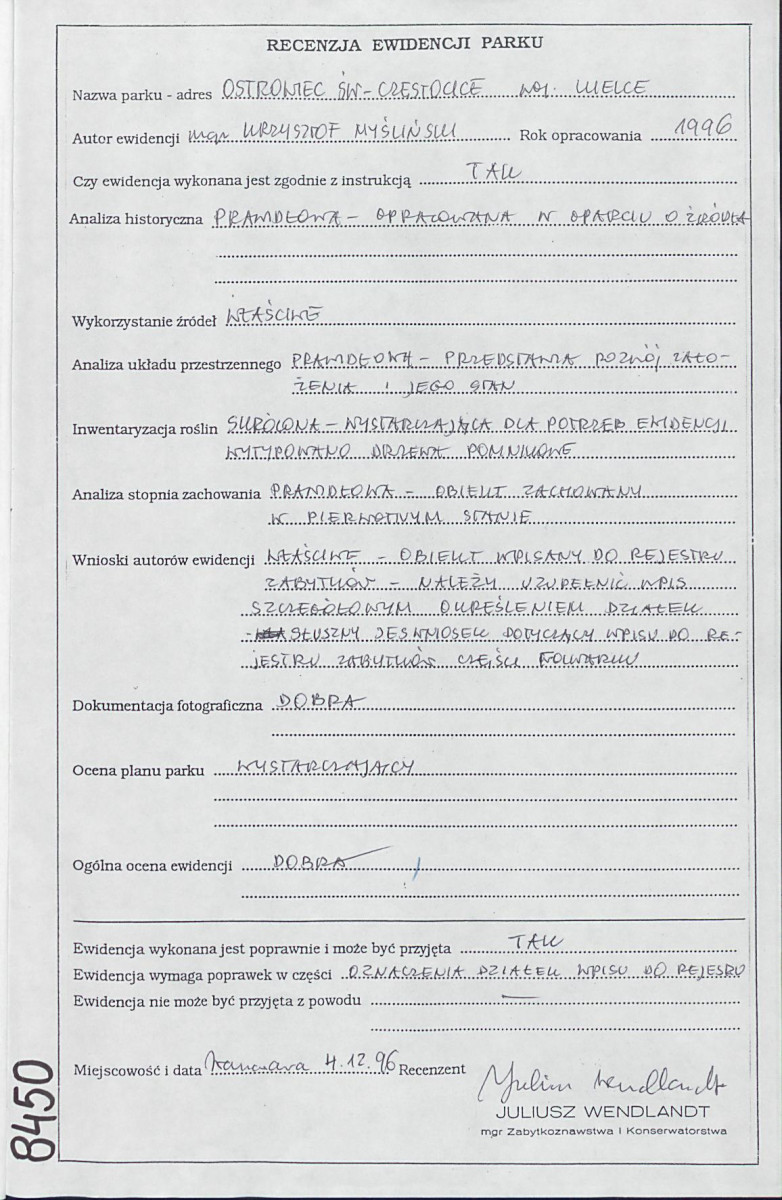 RECENZJA EWIDENCJI PARKU
Nazwa parku - adres OSTROWIEC ŚW-CZĘSTOCICE woj. KIELCE
Autor ewidencji mgr KRZYSZTOF MYŚLIŃSKI Rok opracowania 1996
Czy ewidencja wykonana jest zgodnie z instrukcją TAK
Analiza historyczna PRAWIDŁOWA - OPRACOWANA W OPARCIU O ŹRÓDŁA
Wykorzystanie źródeł WŁAŚCIWE
Analiza układu przestrzennego PRAWIDŁOWA - PRZEDSTAWIA ROZWÓJ ZAŁO-
ŻENIA I JEGO STAN
Inwentaryzacja roślin SKRÓCONA - WYSTARCZAJĄCA DLA POTRZEB EWIDENCJI
WYTYPOWANO DRZEWA POMNIKOWE
Analiza stopnia zachowania PRAWIDŁOWA - OBIEKT ZACHOWANY
W PIERWOTNYM STANIE
Wnioski autorów ewidencji WŁAŚCIWE - OBIEKT WPISANY DO REJESTRU
ZABYTKÓW - NALEŻY UZUPEŁNIĆ WPIS
SZCZEGÓŁOWYM OKREŚLENIEM DZIAŁEK
- SŁUSZNY JEST WNIOSEK DOTYCZĄCY WPISU DO RE-
JESTRU ZABYTKÓW CZĘŚCI FOLWARKU
Dokumentacja fotograficzna DOBRA
Ocena planu parku WYSTARCZAJĄCY
Ogólna ocena ewidencji DOBRA
Ewidencja wykonana jest poprawnie i może być przyjęta TAK
Ewidencja wymaga poprawek w części OZNACZENIA DZIAŁEK WPISU DO REJESRU
Ewidencja nie może być przyjęta z powodu —
Miejscowość i data Warszawa 4.12.96 Recenzent Juliusz Wendlandt
JULIUSZ WENDLANDT
mgr Zabytkoznawstwa i Konserwatorstwa
8450